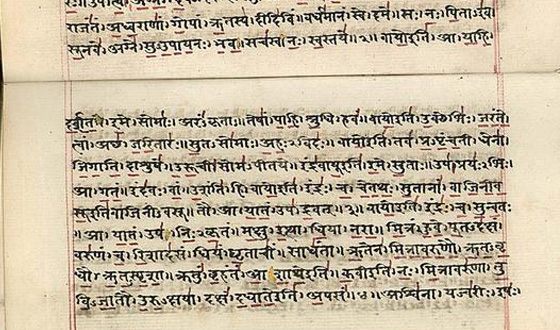 राजंतं। अध्वराणां। गोपां। ऋतस्य। दीदिविं। वर्धमानं। स्वे। दमे। सः। नः। पिताऽइव
सूनवे। अग्ने। सुऽउपायनः। भव। सचस्व। नः। स्वस्तये॥२॥ वायोइति। आ। याहि।
दर्शत। इमे। सोमाः। अरंऽकृताः। तेषां। पाहि। श्रुधि। हवं॥ वायोइति। उक्थेभिः। जरंते
त्वां। अच्छ। जरितारः। सुतऽसोमाः। अहःऽविदः॥ वायोइति। तव। प्रऽपृंचती। धेना
जिगाति। दाशुषे। उरूची। सोमऽपीतये॥ इंद्रवायूइति। इमे। सुताः। उप। प्रयःऽभिः।
आ। गतं॥ इंदवः। वां। उशंति। हि। वायोइति। इंद्रः। च। चेतथः। सुतानां। वाजिनीव
सूइतिवाजिनीऽवसू। तौ। आ। यातं। उप। द्रवत्॥३॥ वायोइति। इंद्रः। च। सुन्वतः
॥ आ। यातं। उप। निःऽकृतं। मक्षु। इत्था। धिया। नरा॥ मित्रं। हुवे। पूतऽदक्षं।
वरुणं। च। रिशादसं। धियं। घृताचीं। साधंता॥ ऋतेन। मित्रावरुणौ। ऋतऽवृ
धौ। ऋतऽस्पृशा। क्रतुं। बृहंतं। आशाथेइति॥ कवीइति। नः। मित्रावरुणा। तु
विऽजातौ। उरुऽक्षया। दक्षं। दधातेइति। अपसं॥४॥ अश्विना। यज्वरीः। इषः।